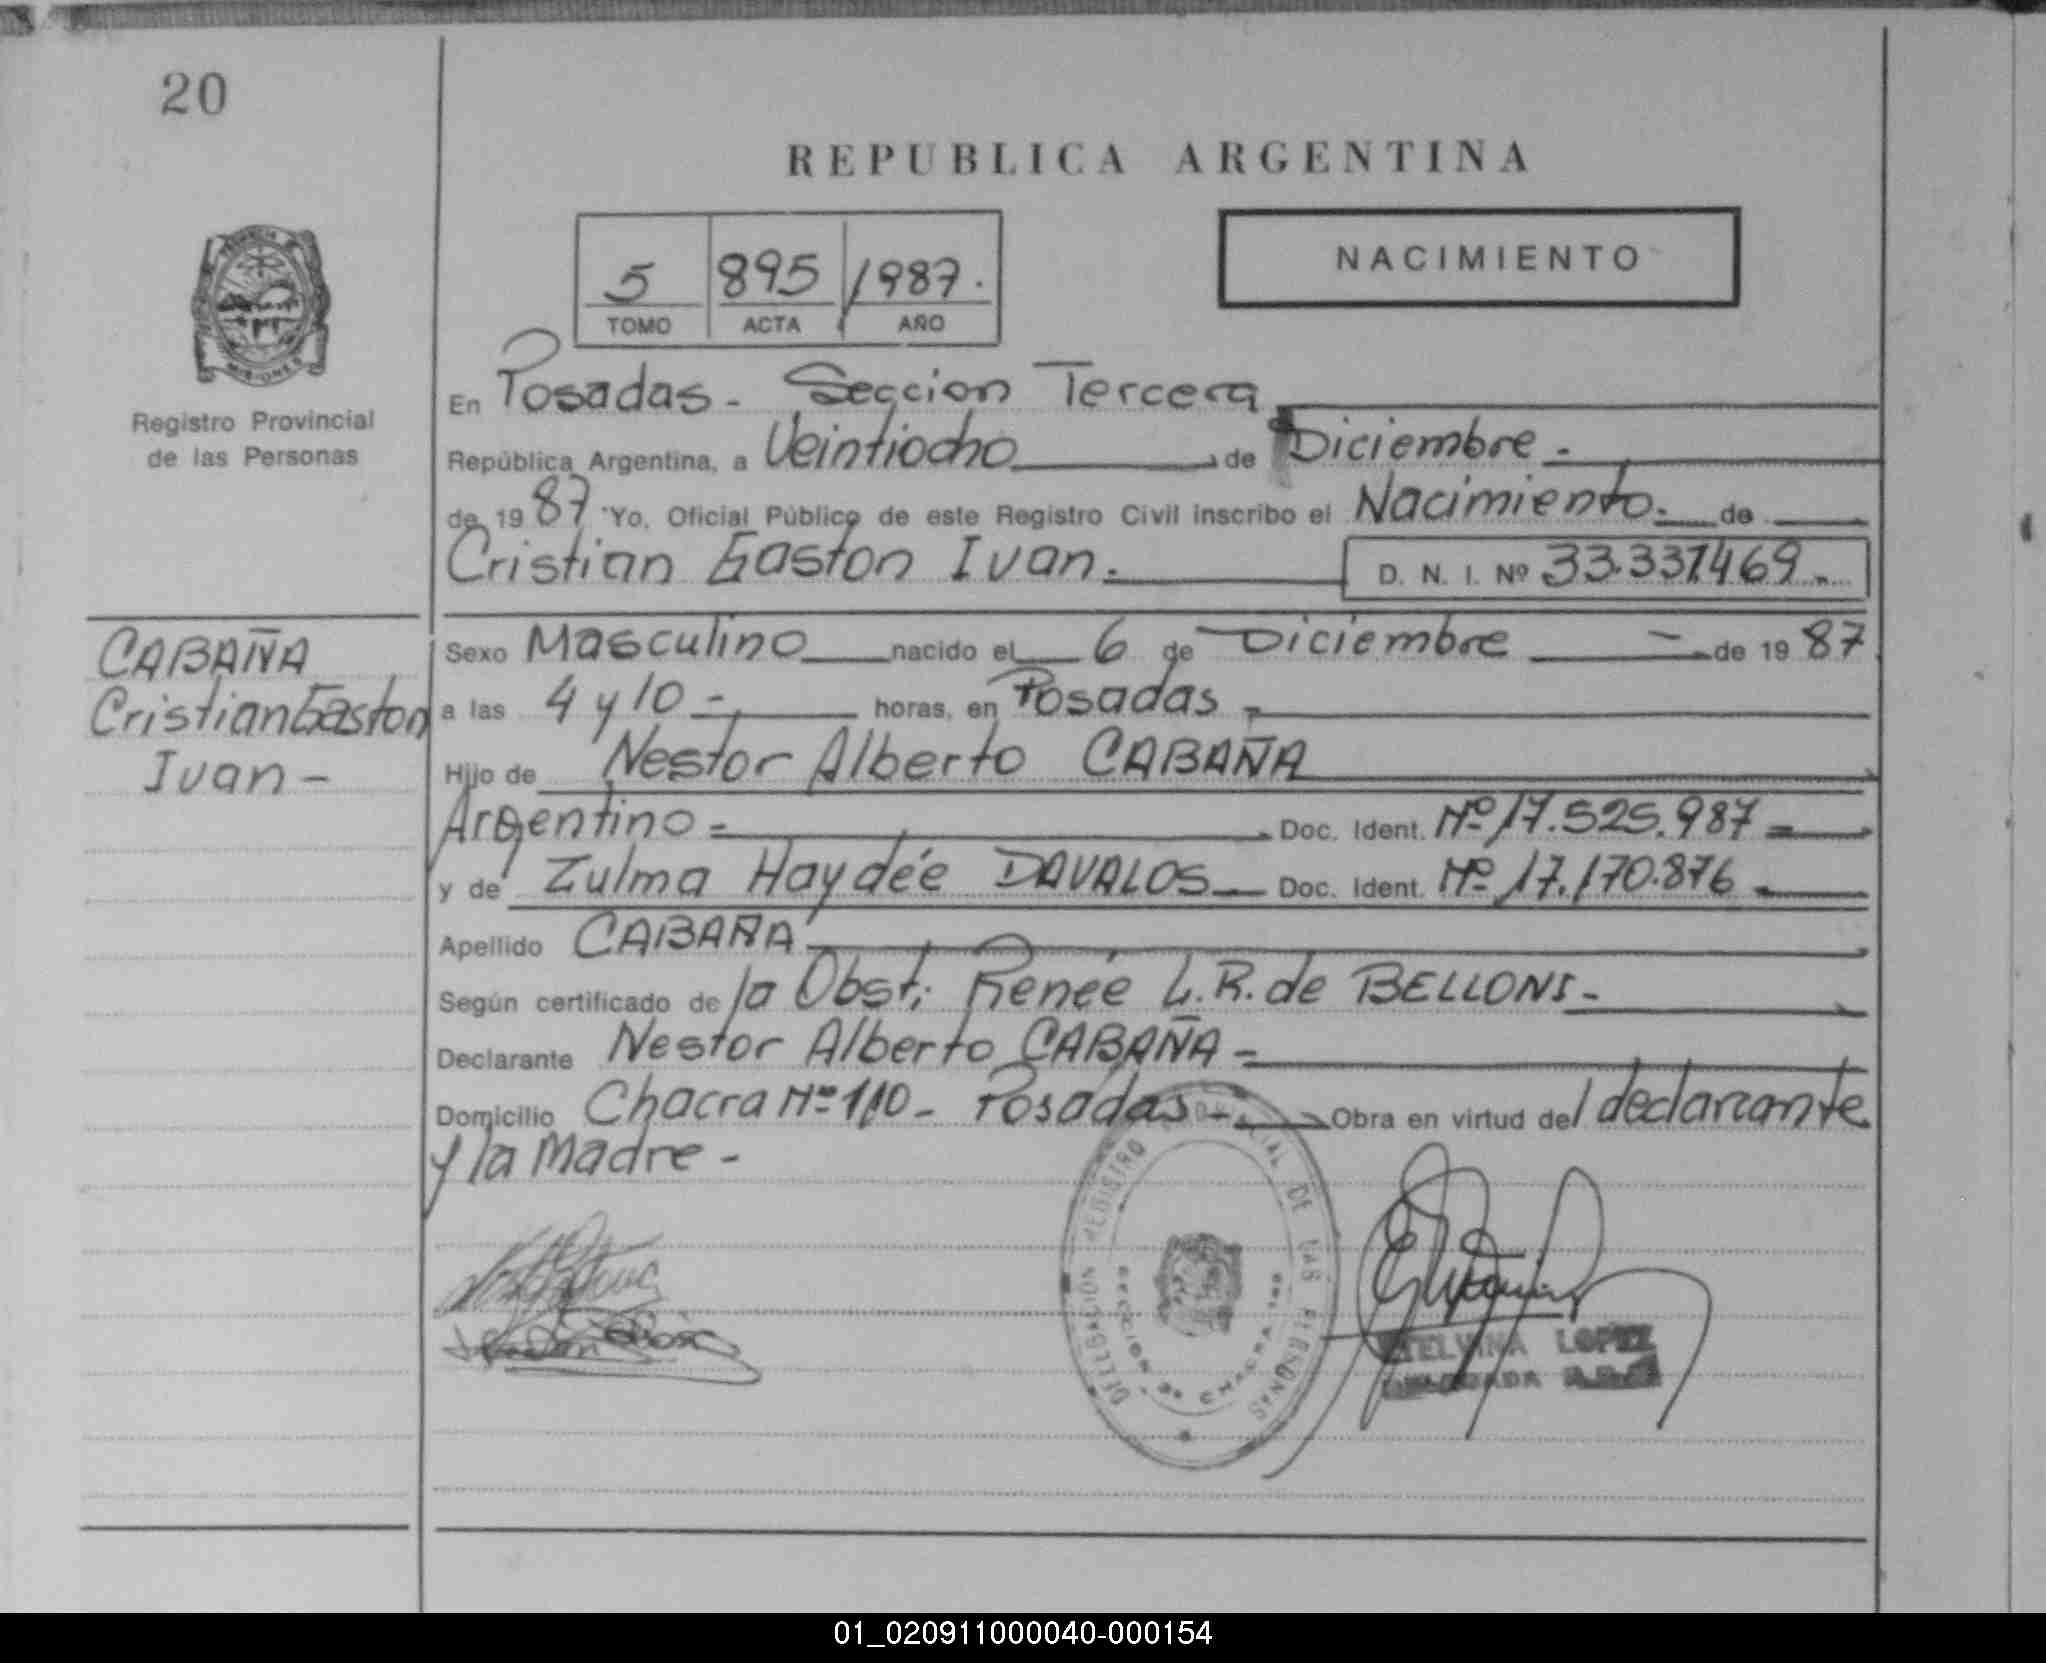 20
REPUBLICA ARGENTINA
NACIMIENTO
5 895 1987.
TOMO ACTA AÑO
PROVINCIA DE
MISIONES
Registro Provincial
de las Personas
En Posadas - Seccion Tercera
República Argentina, a Veintiocho de Diciembre -
de 1987 Yo, Oficial Público de este Registro Civil inscribo el Nacimiento. de
Cristian Gaston Ivan. D. N. I. Nº 33.337.469 -
CABAÑA
Cristian Gaston
Ivan -
Sexo Masculino nacido el 6 de Diciembre - de 1987
a las 4 y 10 - horas, en Posadas -
Hijo de Nestor Alberto CABAÑA
Argentino = Doc. Ident. Nº 17.525.987 =
y de Zulma Haydée DAVALOS - Doc. Ident. Nº 17.170.876 -
Apellido CABAÑA
Según certificado de la Obst. Renée L.R. de BELLONI -
Declarante Nestor Alberto CABAÑA =
Domicilio Chacra Nº 110 - Posadas - Obra en virtud del declarante
y la Madre -
DELEGACION REGISTRO PROVINCIAL DE LAS PERSONAS
SECCION 3a CHACRA 190
ETELVINA LOPEZ
01_020911000040-000154